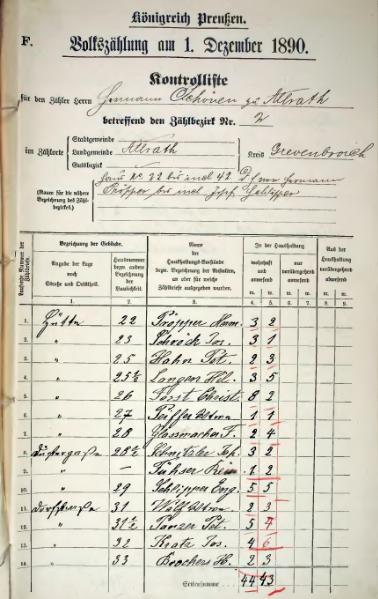 Königreich Preußen.
F. Volkszählung am 1. Dezember 1890.
Kontrolliste
für den Zähler Herrn Hermann Schöven zu Allrath
betreffend den Zählbezirk Nr. 2
im Zählorte
Stadtgemeinde
Landgemeinde Allrath
Gutsbezirk
Kreis Grevenbroich
Haus No 22 bis incl 42 Hermann
(Raum für die nähere Bezeichnung des Zählbezirks.)
Pröpper bis incl Josef Schlipper
Bezeichnung der Gebäude.
Angabe der Lage nach Straße und Ortsteil.
Hausnummer bezw. andere Bezeichnung der Baulichkeit.
Name
der Haushaltungs-Vorstände bezw. Bezeichnung der Anstalten, an oder für welche Zählbriefe ausgegeben wurden.
In der Haushaltung
wohnhaft und anwesend
nur vorübergehend anwesend
Aus der Haushaltung
vorübergehend abwesend
m. w. m. w. m. w.
1. 2. 3. 4. 5. 6. 7. 8. 9.
1. Hütte 22 Pröpper Herm. 3 2
2. " 23 Schröck Jos. 3 1
3. " 25 Hahn Pet. 2 3
4. " 25½ Langen 3 5
5. " 26 Christ. 8 2
6. " 27 Peiffer 1 1
7. " 28 Glasmacher 2 4
8. 28½ Schnitzler Jos. 3 2
9. " — Fühser 1 2
10. " 29 Schlipper Eng. 5 5
11. Dorfstraße 31 Wolf 2 3
12. " 31½ Panzer Pet. 5 4
13. " 32 Kratz Jos. 4 6
14. " 33 Brochers H. 2 3
Seitensumme 44 43